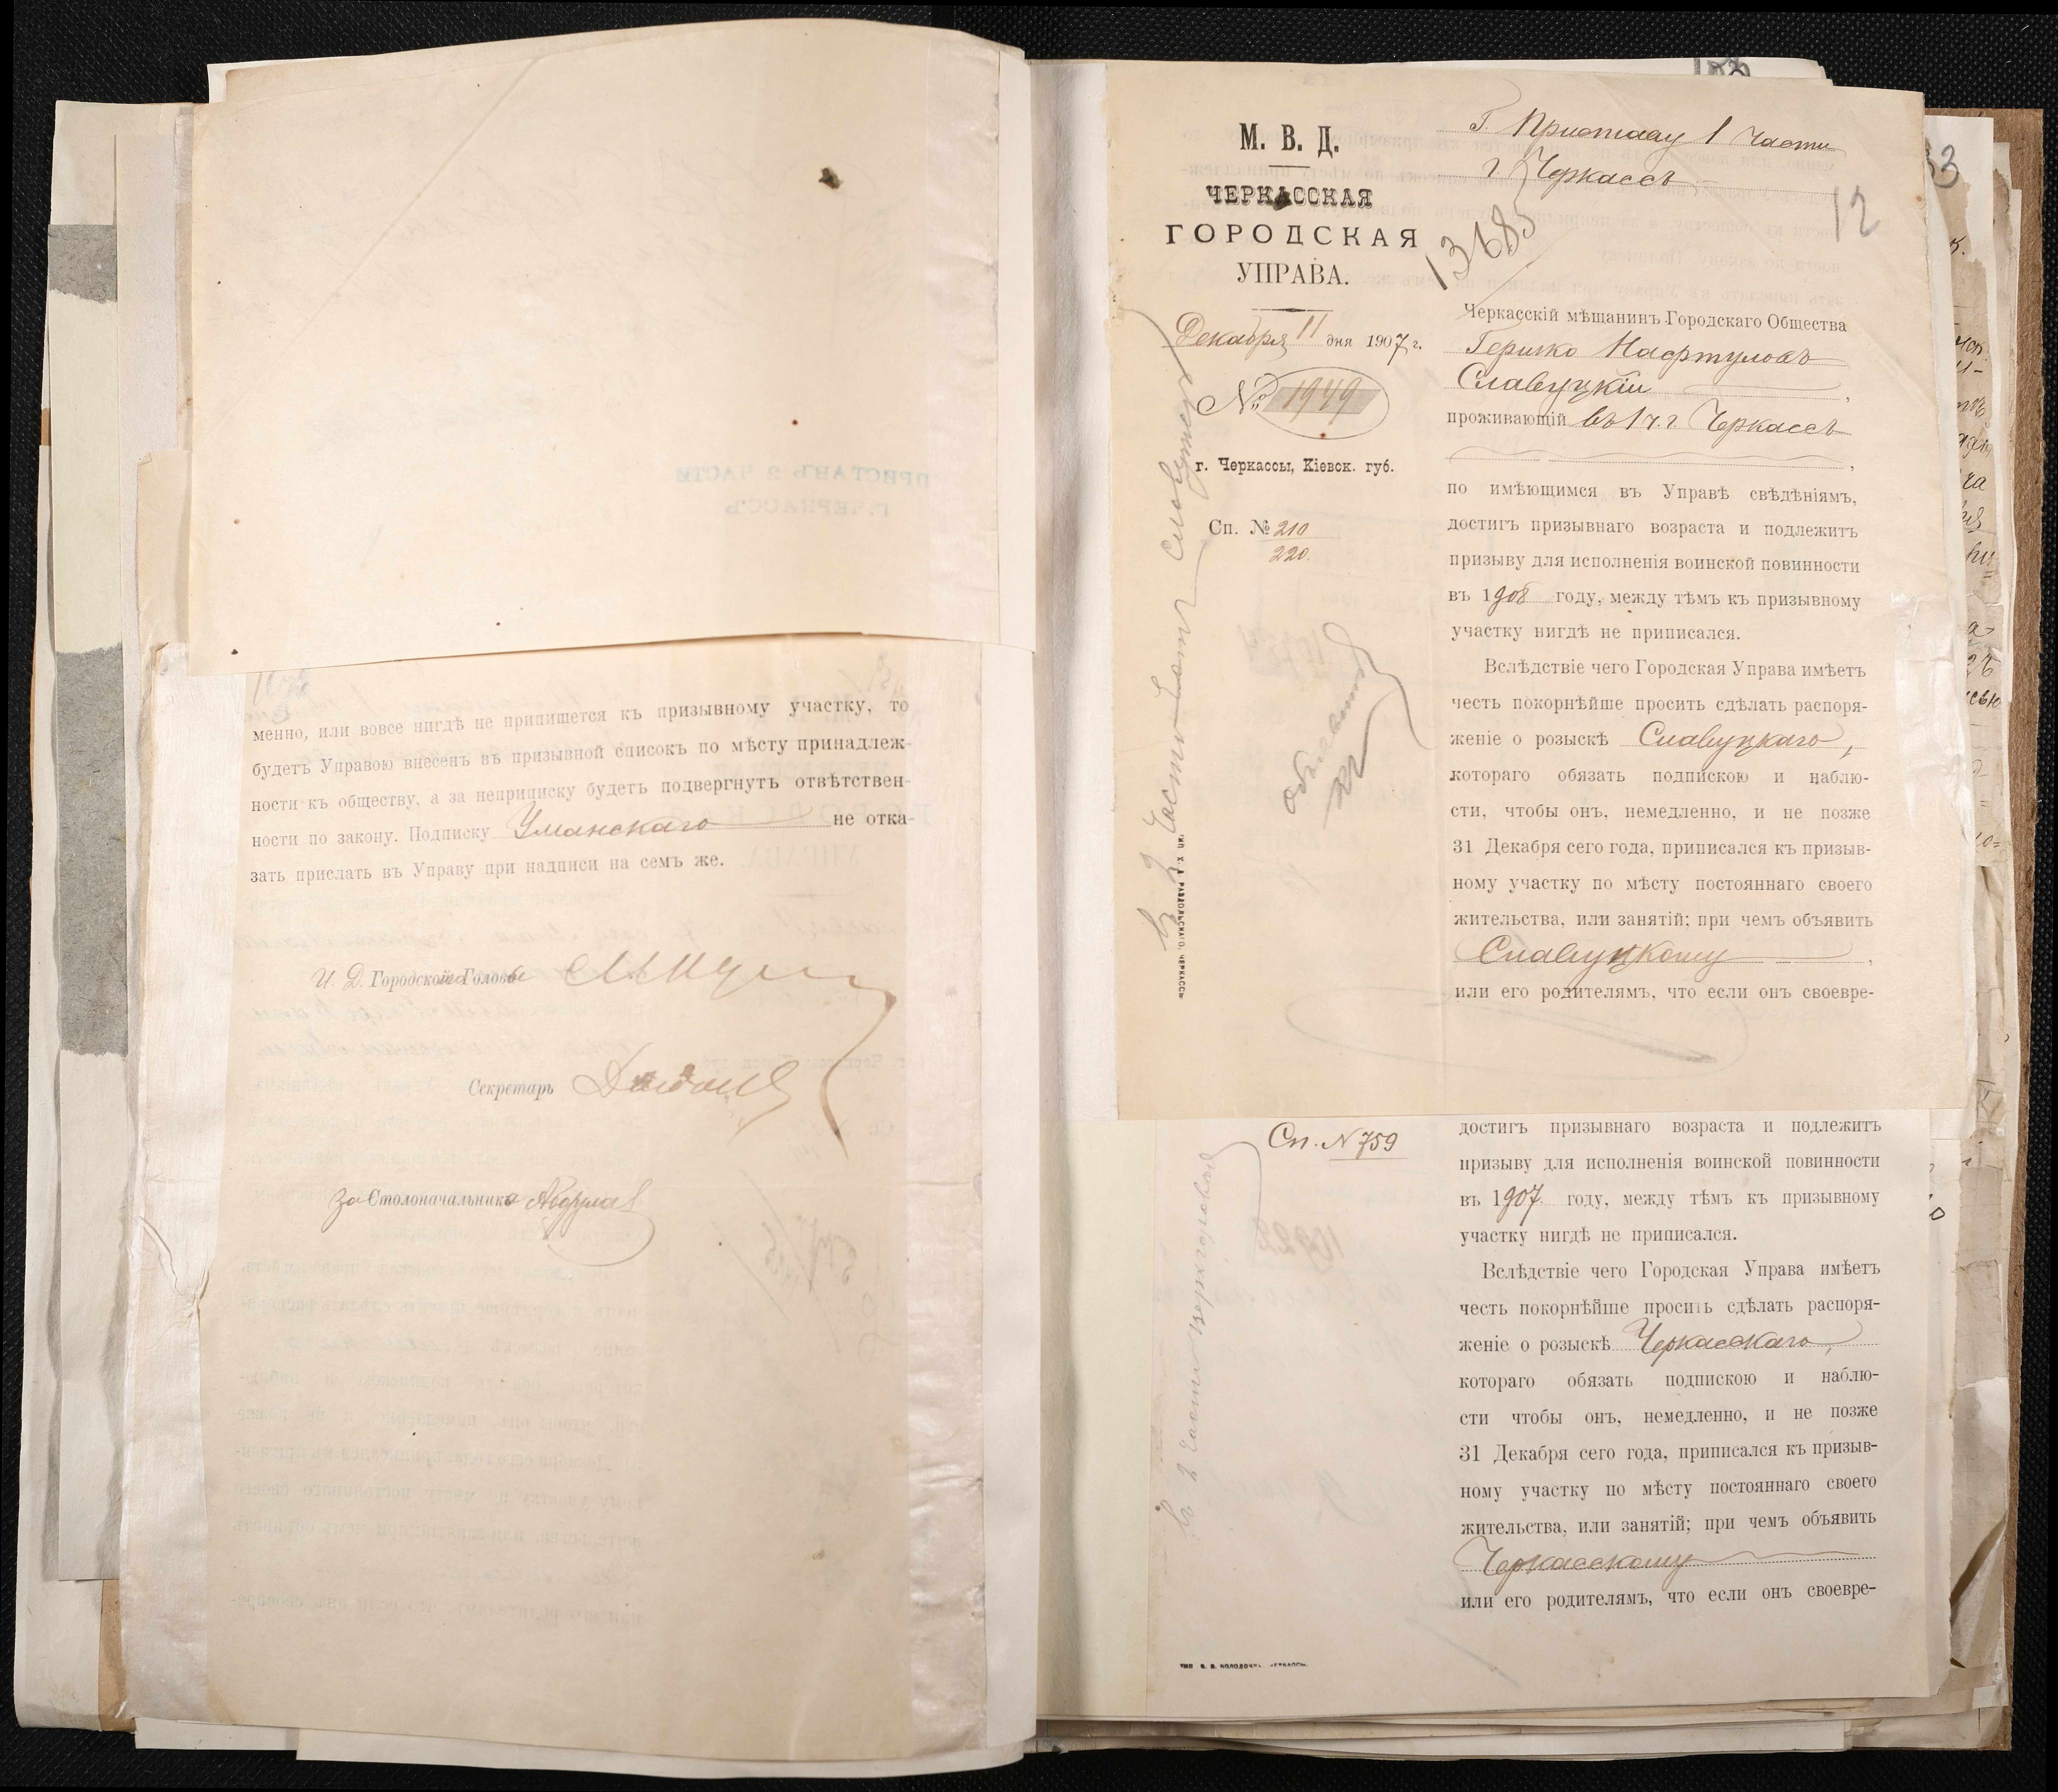 менно, или вовсе нигдѣ не припишется къ призывному участку, то
будетъ Управою внесенъ въ призывной списокъ по мѣсту принадлеж-
ности къ обществу, а за неприписку будетъ подвергнутъ отвѣтствен-
ности по закону. Подписку Уманскаго не отка-
зать прислать въ Управу при надписи на семъ же.
И. Д. Городской Головы
Секретарь
За Столоначальника
М. В. Д.
ЧЕРКАССКАЯ
ГОРОДСКАЯ
УПРАВА.
Декабря 11 дня 1907 г.
№ 1949
г. Черкассы, Кіевск. губ.
Сп. № 210
220.
Г. Приставу 1 части
г. Черкассъ
13685
12
Черкасскій мѣщанинъ Городскаго Общества
Гершко Нафтуловъ
Славуцкій,
проживающій въ 1 ч. г. Черкассъ,
по имѣющимся въ Управѣ свѣдѣніямъ,
достигъ призывнаго возраста и подлежитъ
призыву для исполненія воинской повинности
въ 1908 году, между тѣмъ къ призывному
участку нигдѣ не приписался.
Вслѣдствіе чего Городская Управа имѣетъ
честь покорнѣйше просить сдѣлать распоря-
женіе о розыскѣ Славуцкаго,
котораго обязать подпискою и наблю-
сти, чтобы онъ, немедленно, и не позже
31 Декабря сего года, приписался къ призыв-
ному участку по мѣсту постояннаго своего
жительства, или занятій; при чемъ объявить
Славуцкому,
или его родителямъ, что если онъ своевре-
Сп. № 759
достигъ призывнаго возраста и подлежитъ
призыву для исполненія воинской повинности
въ 1907 году, между тѣмъ къ призывному
участку нигдѣ не приписался.
Вслѣдствіе чего Городская Управа имѣетъ
честь покорнѣйше просить сдѣлать распоря-
женіе о розыскѣ Черкасскаго,
котораго обязать подпискою и наблю-
сти чтобы онъ, немедленно, и не позже
31 Декабря сего года, приписался къ призыв-
ному участку по мѣсту постояннаго своего
жительства, или занятій; при чемъ объявить
Черкасскому
или его родителямъ, что если онъ своевре-